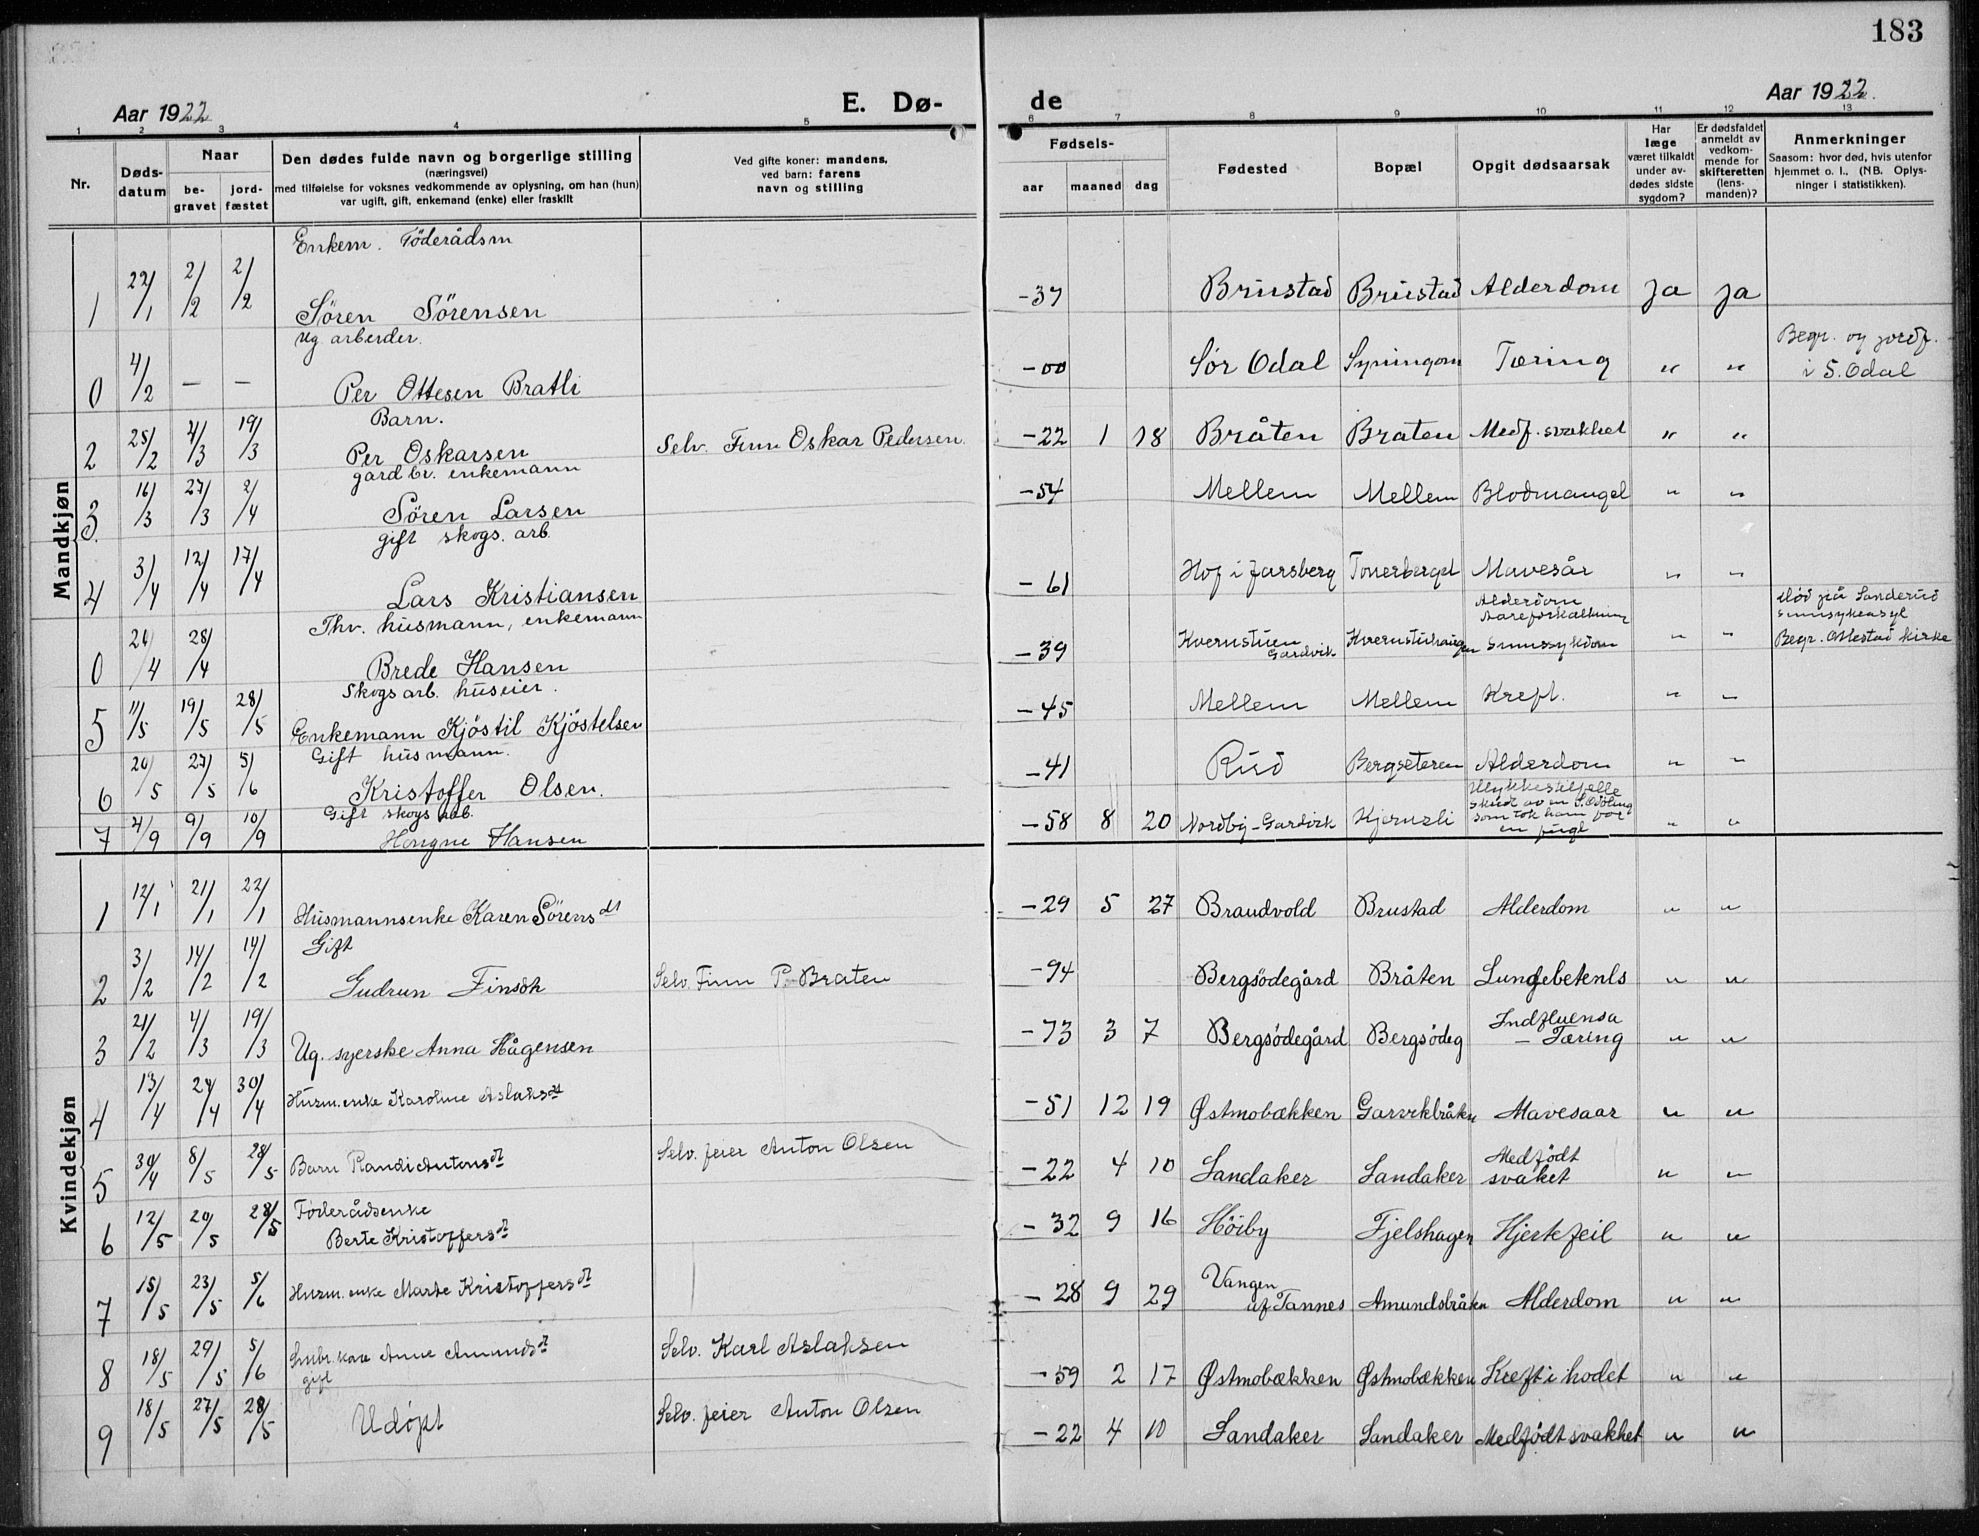 183
Aar 1922 E. Dø- de Aar 1922.
1 2 3 4 5 6 7 8 9 10 11 12 13
Nr. Døds-datum Naar be-gravet jord-fæstet Den dødes fulde navn og borgerlige stilling (næringsvei) med tilføielse for voksnes vedkommende av oplysning, om han (hun) var ugift, gift, enkemand (enke) eller fraskilt Ved gifte koner: mandens, ved barn: farens navn og stilling Fødsels- aar maaned dag Fødested Bopæl Opgit dødsaarsak Har læge været tilkaldt under av-dødes sidste sygdom? Er dødsfaldet anmeldt av vedkom-mende for skifteretten (lens-manden)? Anmerkninger Saasom: hvor død, hvis utenfor hjemmet o. l.. (NB. Oplys-ninger i statistikken).
Mandkjøn
Enkem. Föderådsm
1 22/1 2/2 2/2 Sören Sörensen -37 Brustad Brustad Alderdom Ja Ja
Ug arbeider.
0 4/2 — — Per Ottesen Bratli -00 Sör Odal Tæring " " Begr. og jordf. i S. Odal
Barn.
2 25/2 4/3 19/3 Per Oskarsen Selv. Finn Oskar Pedersen -22 1 18 Bråten Bråten Medf. svakhet " "
gårdbr. enkemann
3 16/3 27/3 2/4 Sören Larsen -54 Mellem Mellem Blodmangel " "
gift skogs. arb.
4 3/4 12/4 17/4 Lars Kristiansen -61 Hof i Jarsberg Tonerberget Mavesår " "
Fhv. husmann, enkemann
0 20/4 28/4 Brede Hansen -39 Kvernstuen Gardvik Kvernstuhaugen Alderdom Aareforkalkning Sinnssykdom " " död på Sanderud sinnsykeasyl Begr. Ottestad kirke
Skogsarb. huseier.
5 11/5 19/5 28/5 Enkemann Kjöstil Kjöstelsen -45 Mellem Mellem Kreft. " "
Gift husmann.
6 20/5 27/5 5/6 Kristoffer Olsen. -41 Rud Bergseteren Alderdom " "
Gift skogsarb.
7 4/9 9/9 10/9 Hansen -58 8 20 Nordby-Gardvik Kjernsli Ulykkestilfelle skudt av en som tok ham for en fugl " "
Kvindekjøn
1 12/1 21/1 22/1 Husmannsenke Karen Sörensdt -29 5 27 Brandvold Brustad Alderdom " "
Gift
2 3/2 14/2 14/2 Gudrun Finsdt Selv. Finn P. Bråten -94 Bergsödegård Bråten Lungebetenls " "
3 21/2 4/3 19/3 Ug. syerske Anna Hågensen -73 3 7 Bergsödegård Bergsödeg Indfluensa - Tæring " "
4 13/4 24/4 30/4 Husm.enke Karoline Aslaksdt -51 12 19 Østmobækken Garvikbråten Mavesaar " "
5 30/4 8/5 28/5 Barn Randi Antonsdt Selv. feier Anton Olsen -22 4 10 Sandaker Sandaker Medfödt svaket " "
6 12/5 20/5 28/5 Föderådsenke Berte Kristoffersdt -32 9 16 Höiby Fjelshagen Hjertefeil " "
7 15/5 23/5 5/6 Husm.enke Marte Kristoffersdt -28 9 29 Vangen uf Tannes Amundsbråten Alderdom " "
8 18/5 29/5 5/6 Smbr. kone Anne Amundsdt gift Selv. Karl Aslaksen -59 2 17 Østmobækken Østmobækken Kreft i hodet " "
9 18/5 27/5 28/5 Udöpt Selv. feier Anton Olsen -22 4 10 Sandaker Sandaker Medfödt svakhet " "